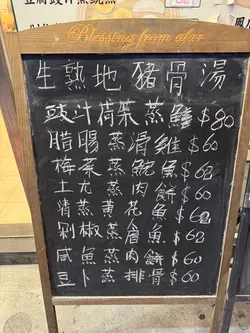 Blessing from afar
生熟地豬骨湯
豉汁荷葉蒸鱔$80
腊腸蒸滑雞$62
梅菜蒸鯇魚$62
土尤蒸肉餅$60
清蒸黄花魚$60
剁椒蒸魚$62
咸魚蒸肉餅$60
豆卜蒸排骨$60